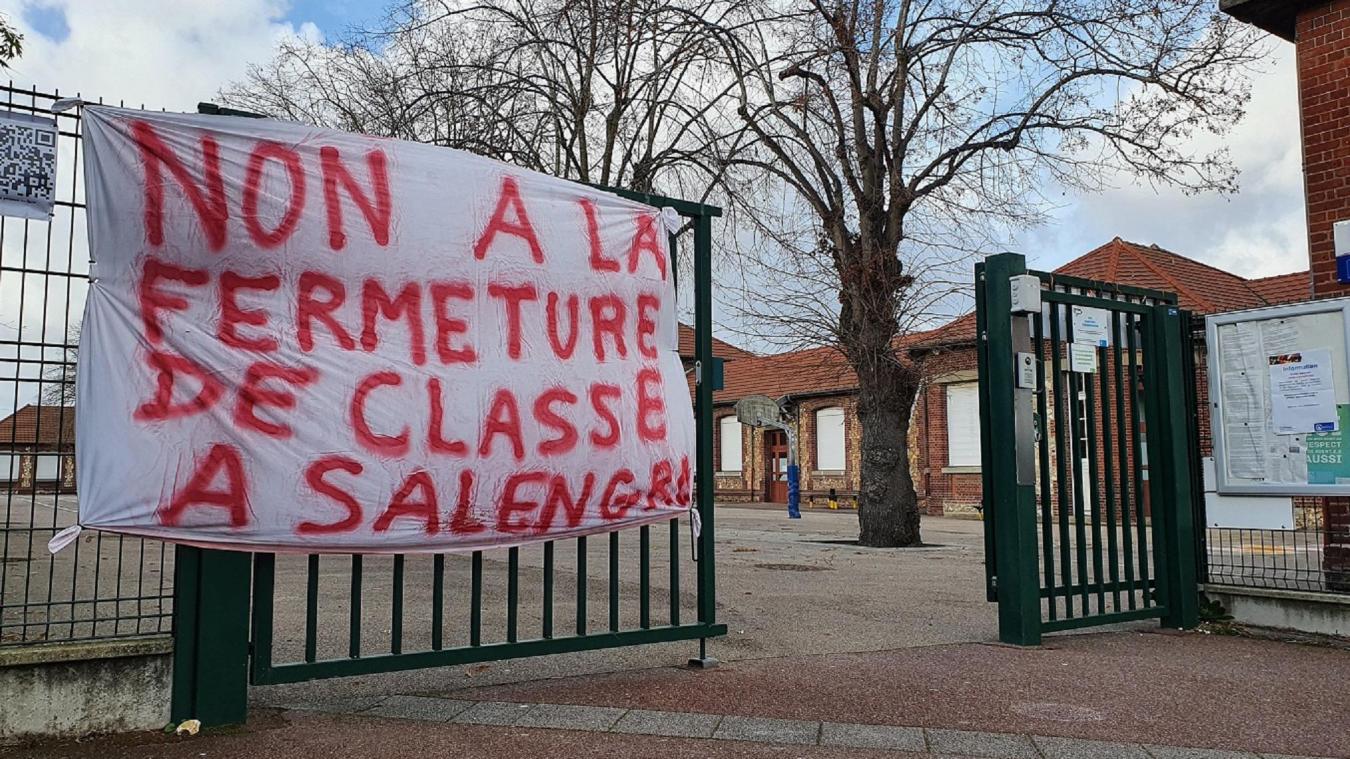 NON A LA
FERMETURE
DE CLASSE
A SALENGRO
Information
RESPECT
AUSSI